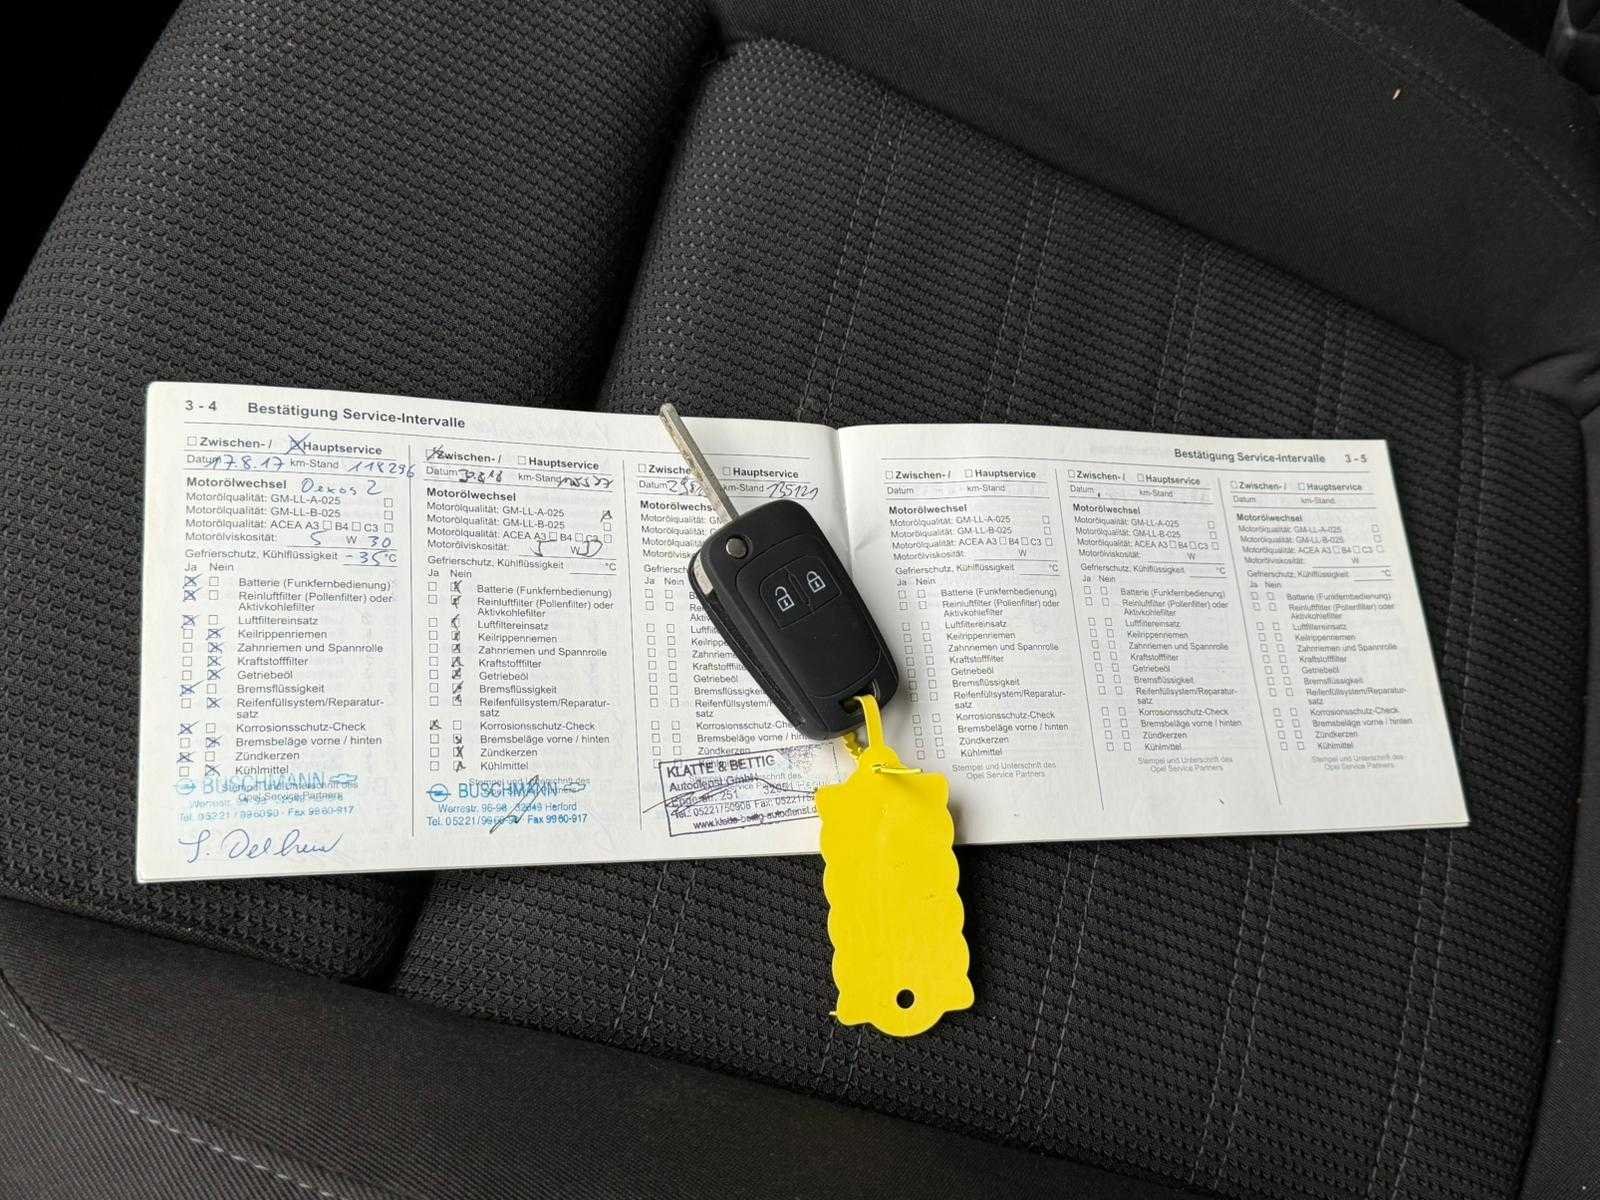 3 - 4 Bestätigung Service-Intervalle
Zwischen- / Hauptservice
Datum 17.8.17 km-Stand 118296
Motorölwechsel Dexos 2
Motorölqualität: GM-LL-A-025
Motorölqualität: GM-LL-B-025
Motorölqualität: ACEA A3 B4 C3
Motorölviskosität: 5 W 30
Gefrierschutz, Kühlflüssigkeit -35 °C
Ja Nein
Batterie (Funkfernbedienung)
Reinluftfilter (Pollenfilter) oder
Aktivkohlefilter
Luftfiltereinsatz
Keilrippenriemen
Zahnriemen und Spannrolle
Kraftstofffilter
Getriebeöl
Bremsflüssigkeit
Reifenfüllsystem/Reparatur-
satz
Korrosionsschutz-Check
Bremsbeläge vorne / hinten
Zündkerzen
Kühlmittel
Stempel und Unterschrift des
Opel Service Partners
BUSCHMANN
Tel. 05221/9960-90 - Fax 9960-917
Zwischen- / Hauptservice
Datum km-Stand
Motorölwechsel
Motorölqualität: GM-LL-A-025
Motorölqualität: GM-LL-B-025
Motorölqualität: ACEA A3 B4 C3
Motorölviskosität: 5 W
Gefrierschutz, Kühlflüssigkeit °C
Ja Nein
Batterie (Funkfernbedienung)
Reinluftfilter (Pollenfilter) oder
Aktivkohlefilter
Luftfiltereinsatz
Keilrippenriemen
Zahnriemen und Spannrolle
Kraftstofffilter
Getriebeöl
Bremsflüssigkeit
Reifenfüllsystem/Reparatur-
satz
Korrosionsschutz-Check
Bremsbeläge vorne / hinten
Zündkerzen
Kühlmittel
Stempel und Unterschrift des
BUSCHMANN
Werrestr. 96-98 32049 Herford
Tel. 05221/9960- Fax 9960-917
Zwischen- Hauptservice
Datum km-Stand 135121
Motorölwechsel
Ja Nein
Getriebeöl
Bremsflüssigkeit
Reifenfüllsystem/Reparatur-
satz
Korrosionsschutz-Check
Bremsbeläge vorne
Zündkerzen
KLATTE & BETTIG
Autodienst GmbH
251
Tel. 05221/50908 Fax: 05221/
Bestätigung Service-Intervalle 3 - 5
Zwischen- / Hauptservice
Datum km-Stand
Motorölwechsel
Motorölqualität: GM-LL-A-025
Motorölqualität: GM-LL-B-025
Motorölqualität: ACEA A3 B4 C3
Motorölviskosität: W
Gefrierschutz, Kühlflüssigkeit °C
Ja Nein
Batterie (Funkfernbedienung)
Reinluftfilter (Pollenfilter) oder
Aktivkohlefilter
Luftfiltereinsatz
Keilrippenriemen
Zahnriemen und Spannrolle
Kraftstofffilter
Getriebeöl
Bremsflüssigkeit
Reifenfüllsystem/Reparatur-
satz
Korrosionsschutz-Check
Bremsbeläge vorne / hinten
Zündkerzen
Kühlmittel
Stempel und Unterschrift des
Opel Service Partners
Zwischen- / Hauptservice
Datum km-Stand
Motorölwechsel
Motorölqualität: GM-LL-A-025
Motorölqualität: GM-LL-B-025
Motorölqualität: ACEA A3 B4 C3
Motorölviskosität: W
Gefrierschutz, Kühlflüssigkeit °C
Ja Nein
Batterie (Funkfernbedienung)
Reinluftfilter (Pollenfilter) oder
Aktivkohlefilter
Luftfiltereinsatz
Keilrippenriemen
Zahnriemen und Spannrolle
Kraftstofffilter
Getriebeöl
Bremsflüssigkeit
Reifenfüllsystem/Reparatur-
satz
Korrosionsschutz-Check
Bremsbeläge vorne / hinten
Zündkerzen
Kühlmittel
Stempel und Unterschrift des
Opel Service Partners
Zwischen- / Hauptservice
Datum km-Stand
Motorölwechsel
Motorölqualität: GM-LL-A-025
Motorölqualität: GM-LL-B-025
Motorölqualität: ACEA A3 B4 C3
Motorölviskosität: W
Gefrierschutz, Kühlflüssigkeit °C
Ja Nein
Batterie (Funkfernbedienung)
Reinluftfilter (Pollenfilter) oder
Aktivkohlefilter
Luftfiltereinsatz
Keilrippenriemen
Zahnriemen und Spannrolle
Kraftstofffilter
Getriebeöl
Bremsflüssigkeit
Reifenfüllsystem/Reparatur-
satz
Korrosionsschutz-Check
Bremsbeläge vorne / hinten
Zündkerzen
Kühlmittel
Stempel und Unterschrift des
Opel Service Partners